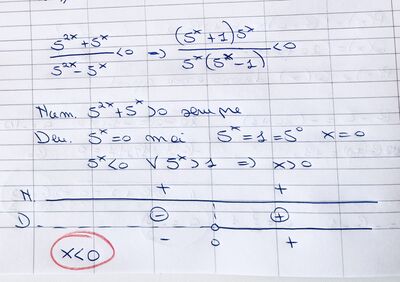 5^{2x}+5^x / 5^{2x}-5^x <0 => (5^x+1)5^x / 5^x(5^x-1) <0
Num. 5^{2x}+5^x>0 sempre
Den. 5^x=0 mai 5^x=1=5^0 x=0
5^x<0 ∨ 5^x>1 => x>0
N. + +
D - +
- 0 +
x<0